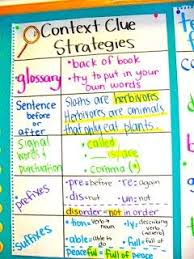 Context Clue
Strategies
glossary
• back of book
• try to put in your
own words
Sentence
before
or
after
Sloths are herbivores
Herbivores are animals
that only eat plants.
Signal
words &
punctuation
• called
• is are
• or
• comma (,)
prefixes
• pre = before • re = again
• dis = not • un = not
disorder = not in order
suffixes
• tion = verb → noun
• ly = describing
verb (adverb)
• able = able to
do
• full = full of
peaceful = full of peace